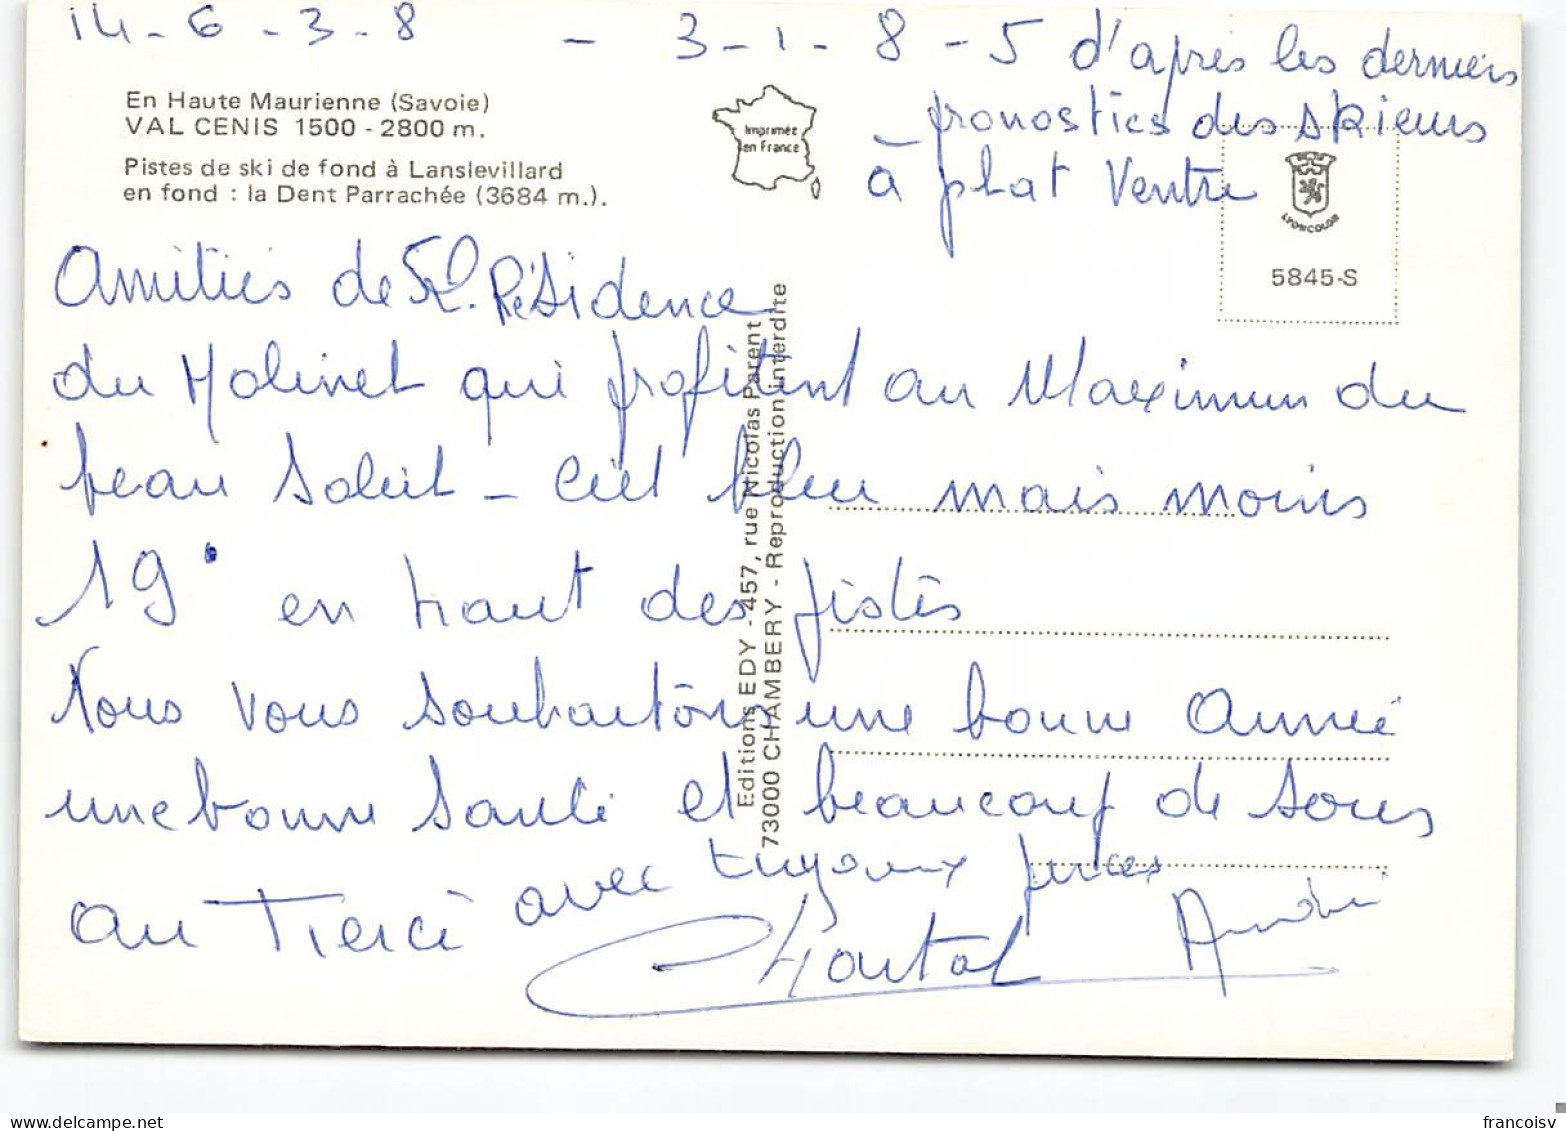 14-6-3-8 - 3-1-8-5 d'après les derniers
pronostics des skieurs
à plat ventre
En Haute Maurienne (Savoie)
VAL CENIS 1500 - 2800 m.
Pistes de ski de fond à Lanslevillard
en fond : la Dent Parrachée (3684 m.).
Imprimée
en France
LYONCOLOR
5845-S
Amitiés de Résidence
du Molinet qui profitent au Maximum du
beau soleil - ciel bleu mais moins
19° en haut des pistes
Nous vous souhaitons une bonne Année
une bonne santé et beaucoup de sous
au Tiercé avec tuyaux
Chantal André
Editions EDY - 457, rue Nicolas Parent
73000 CHAMBERY - Reproduction interdite
francoisv